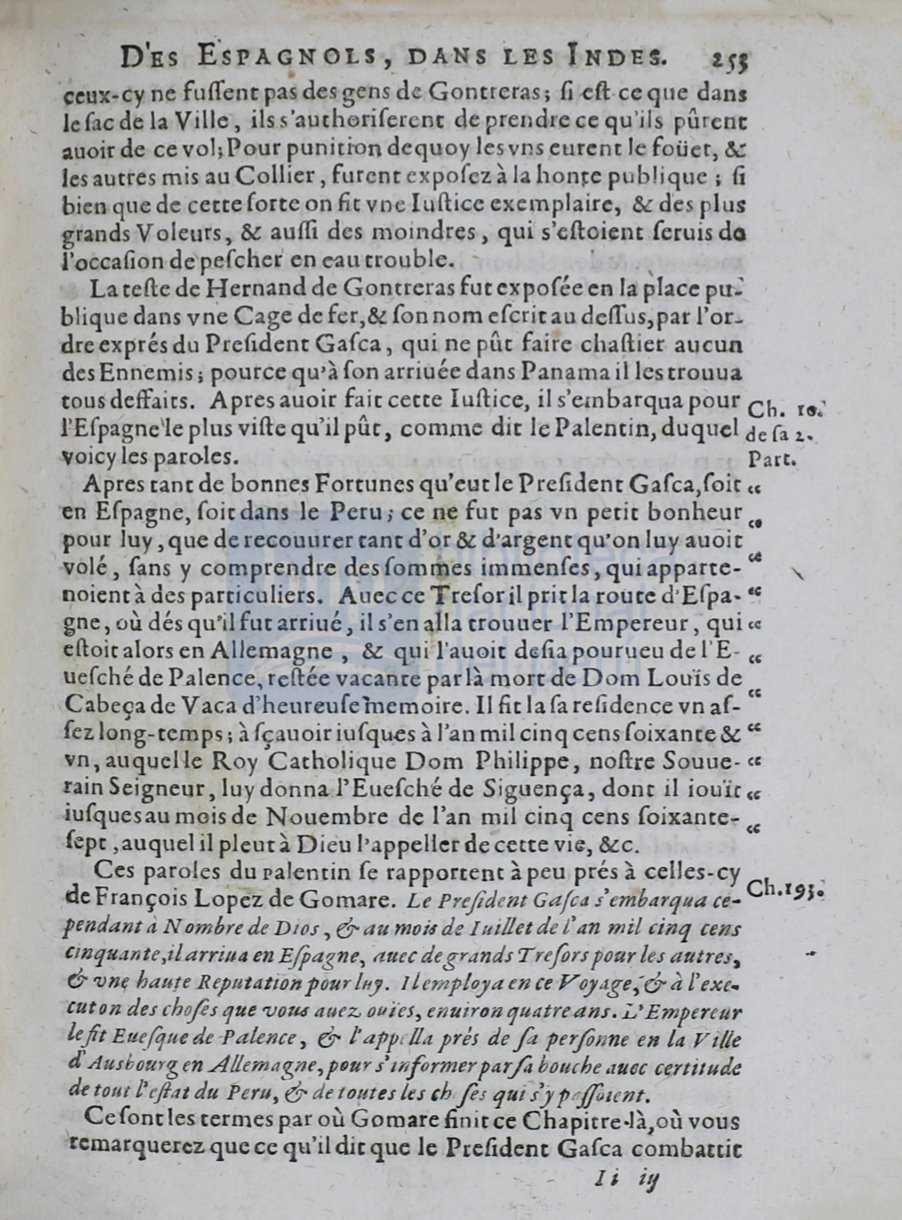 DES ESPAGNOLS, DANS LES INDES. 253
ceux-cy ne fuſſent pas des gens de Gontreras; ſi eſt ce que dans
le ſac de la Ville, ils s'authoriſerent de prendre ce qu'ils pûrent
auoir de ce vol; Pour punition dequoy les vns eurent le foüet, &
les autres mis au Collier, furent expoſez à la honte publique; ſi
bien que de cette ſorte on fit vne Iuſtice exemplaire, & des plus
grands Voleurs, & auſſi des moindres, qui s'eſtoient ſeruis de
l'occaſion de peſcher en eau trouble.
La teſte de Hernand de Gontreras fut expoſée en la place pu-
blique dans vne Cage de fer, & ſon nom eſcrit au deſſus, par l'or-
dre exprés du Preſident Gaſca, qui ne pût faire chaſtier aucun
des Ennemis; pource qu'à ſon arriuée dans Panama il les trouua
tous deffaits. Apres auoir fait cette Iuſtice, il s'embarqua pour
l'Eſpagne le plus viſte qu'il pût, comme dit le Palentin, duquel
voicy les paroles.
Ch. 10.
de ſa 2.
Part.
Apres tant de bonnes Fortunes qu'eut le Preſident Gaſca, ſoit “
en Eſpagne, ſoit dans le Peru; ce ne fut pas vn petit bonheur “
pour luy, que de recouurer tant d'or & d'argent qu'on luy auoit
volé, ſans y comprendre des ſommes immenſes, qui apparte- “
noient à des particuliers. Auec ce Treſor il prit la route d'Eſpa- “
gne, où dés qu'il fut arriué, il s'en alla trouuer l'Empereur, qui “
eſtoit alors en Allemagne, & qui l'auoit deſia pourueu de l'E- “
ueſché de Palence, reſtée vacante par là mort de Dom Louïs de
Cabeça de Vaca d'heureuſe memoire. Il fit la ſa reſidence vn aſ- “
ſez long-temps; à ſçauoir iuſques à l'an mil cinq cens ſoixante & “
vn, auquel le Roy Catholique Dom Philippe, noſtre Souue- “
rain Seigneur, luy donna l'Eueſché de Siguença, dont il iouït “
iuſques au mois de Nouembre de l'an mil cinq cens ſoixante- “
ſept, auquel il pleut à Dieu l'appeller de cette vie, &c.
Ces paroles du Palentin ſe rapportent à peu prés à celles-cy
de François Lopez de Gomare. Le Preſident Gaſca s'embarqua ce-
Ch. 193.
pendant à Nombre de Dios, & au mois de Iuillet de l'an mil cinq cens
cinquante, il arriua en Eſpagne, auec de grands Treſors pour les autres,
& vne haute Reputation pour luy. Il employa en ce Voyage, & à l'exe-
cuton des choſes que vous auez ouïes, enuiron quatre ans. L'Empereur
le fit Eueſque de Palence, & l'appella prés de ſa perſonne en la Ville
d'Ausbourg en Allemagne, pour s'informer par ſa bouche auec certitude
de tout l'eſtat du Peru, & de toutes les choſes qui s'y paſſoient.
Ce ſont les termes par où Gomare finit ce Chapitre-là, où vous
remarquerez que ce qu'il dit que le Preſident Gaſca combattit
Ii iij